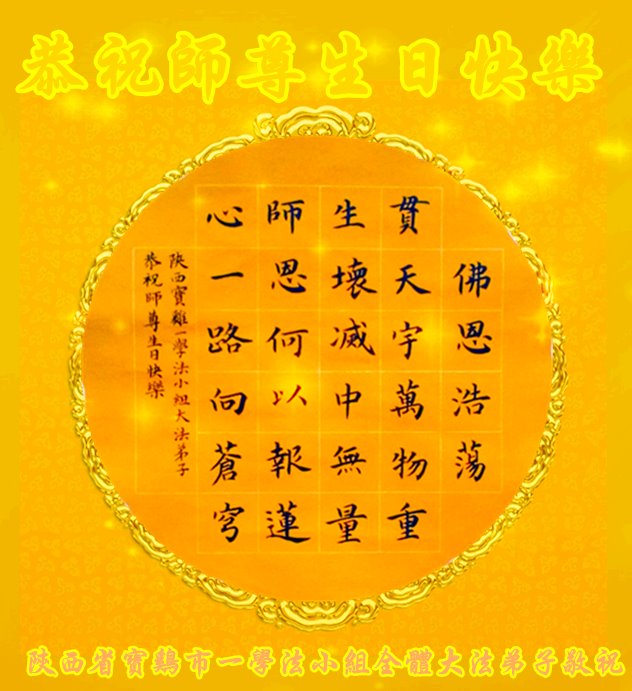 恭祝師尊生日快樂
佛恩浩蕩
貫天宇萬物重
生壞滅中無量
師恩何以報蓮
心一路向蒼穹
陝西寶雞一學法小組大法弟子
恭祝師尊生日快樂
陝西省寶鷄市一學法小組全體大法弟子敬祝